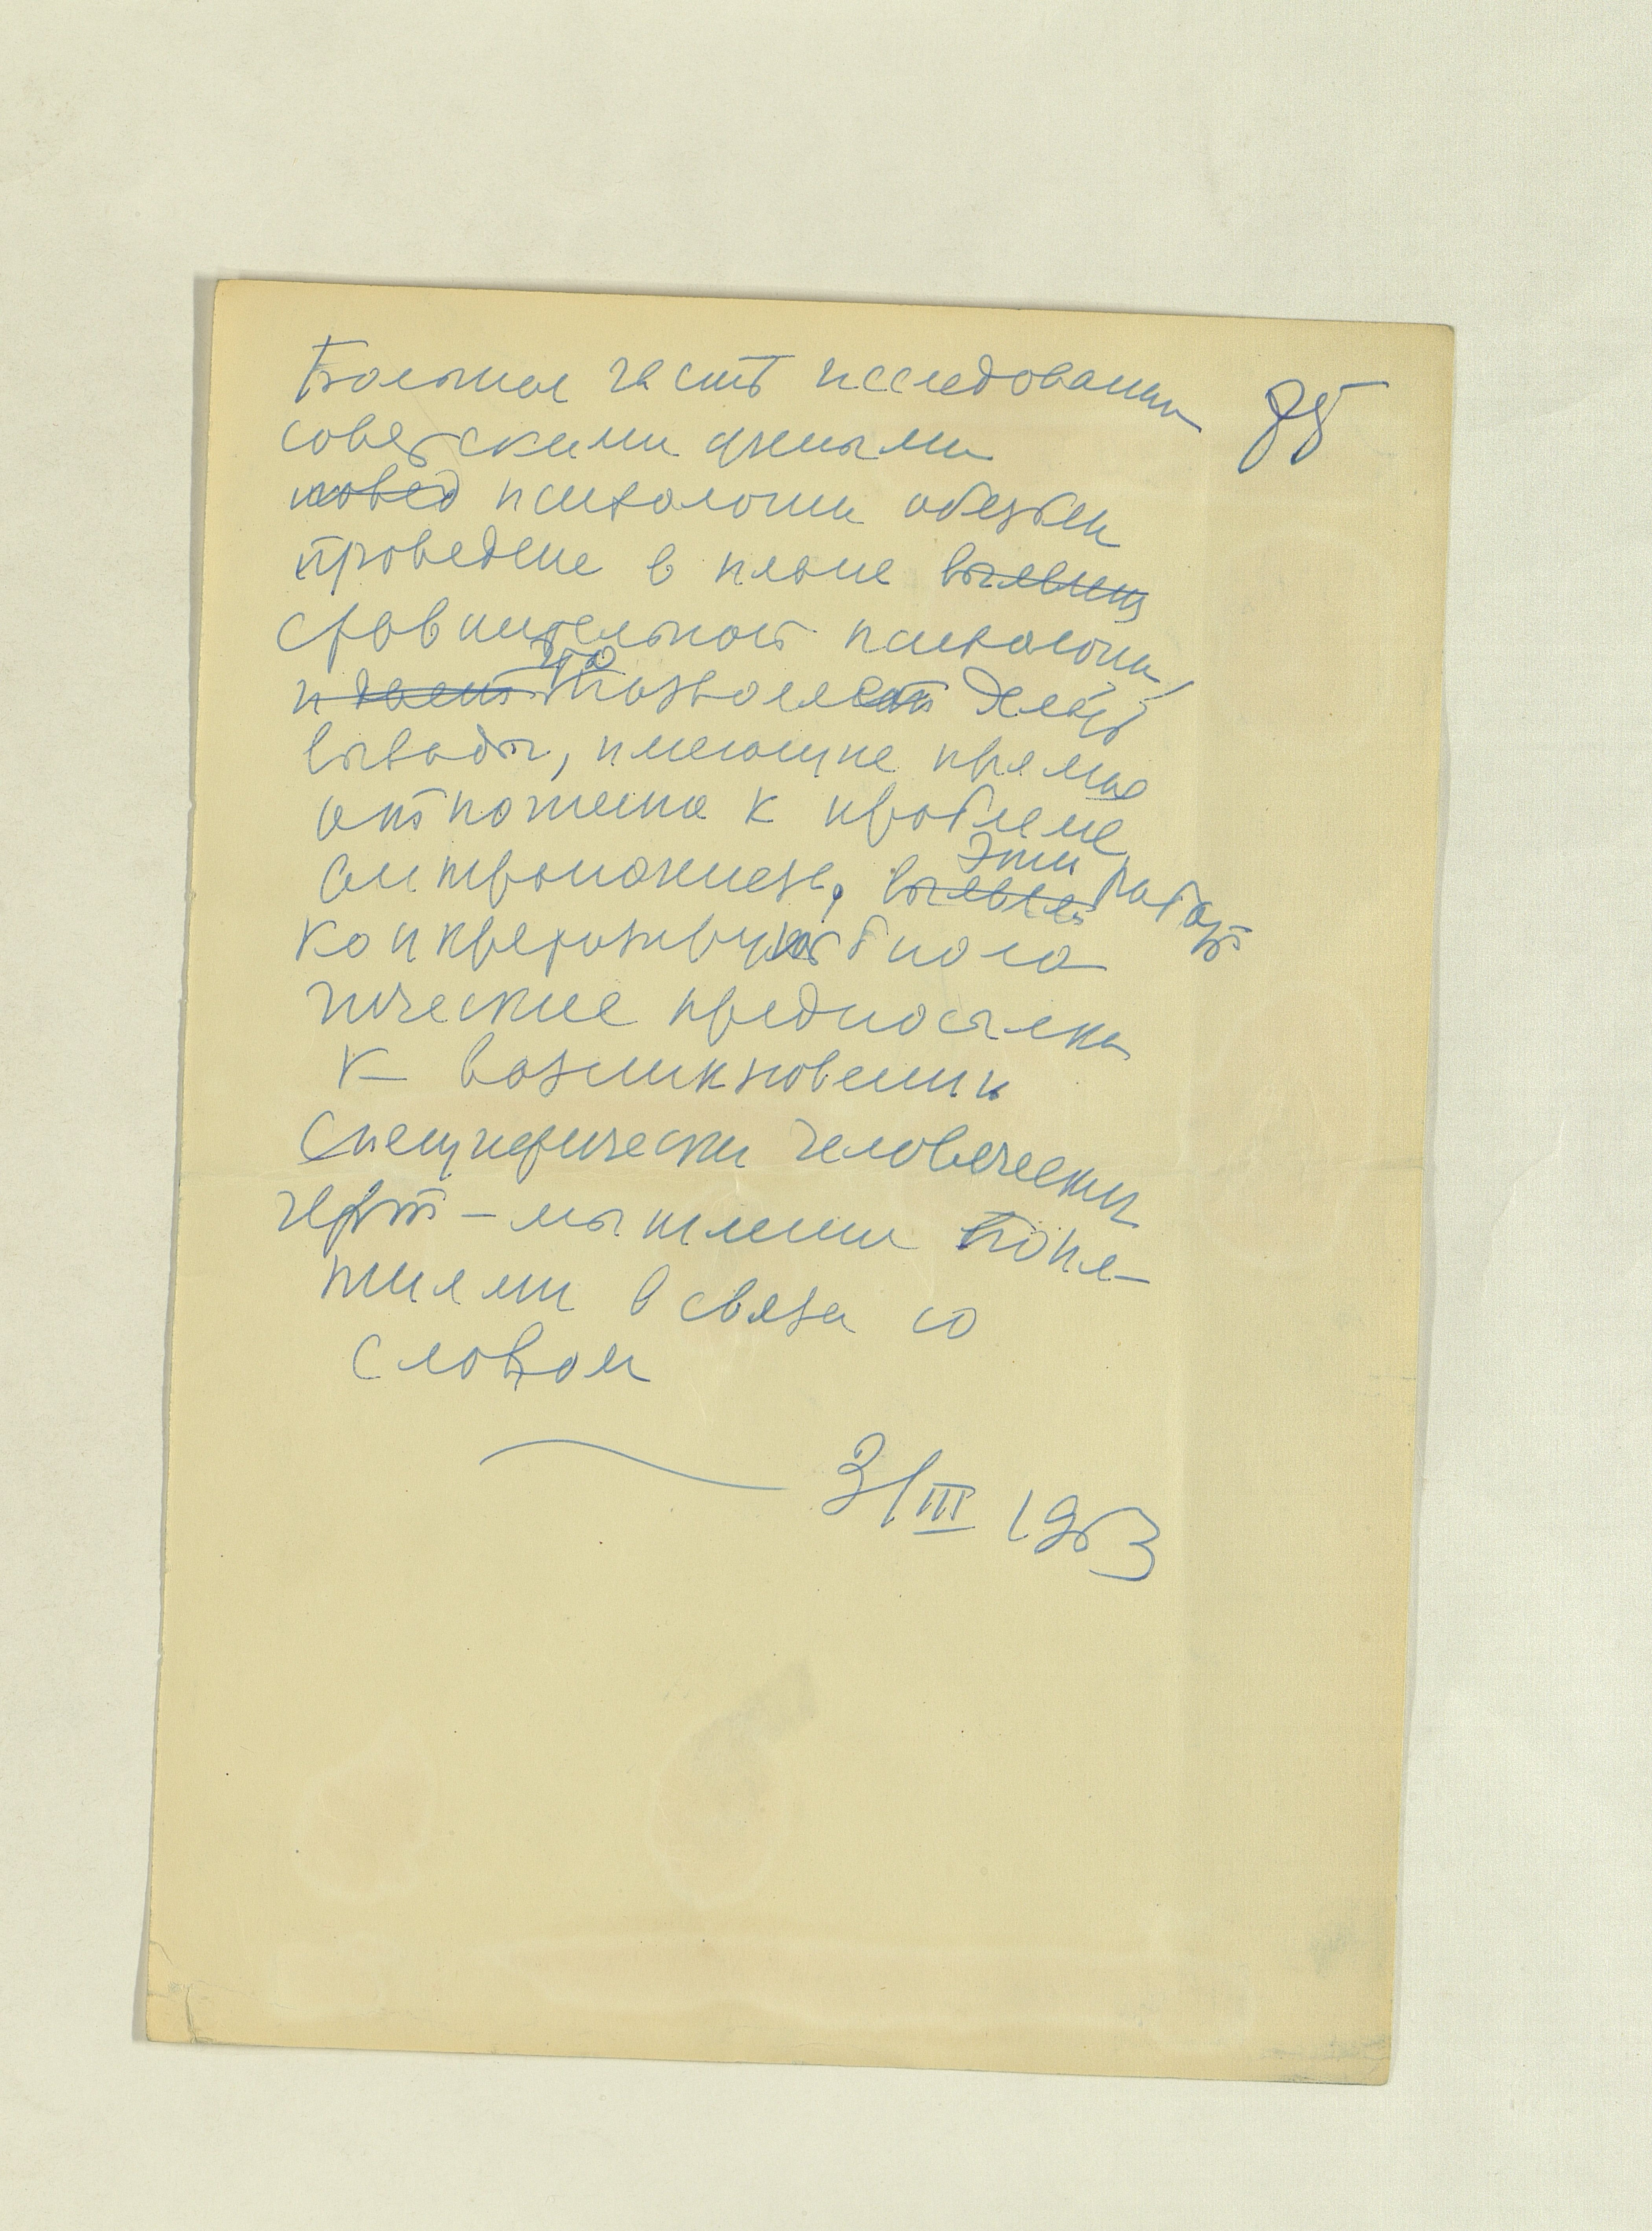 Большая часть исследований 85
советскими учеными
повед психологии обезьян
проведена в плане выявлен
сравнительной психологии,
и дает что позволяет делать
выводы, имеющие прямое
отношение к проблеме
антропогенеза, выявля Эти работы
конкретизируют биоло
гические предпосылки
к возникновению
специфически человеческих
черт – мышления поня–
тиями в связи со
словом
3/III 1963